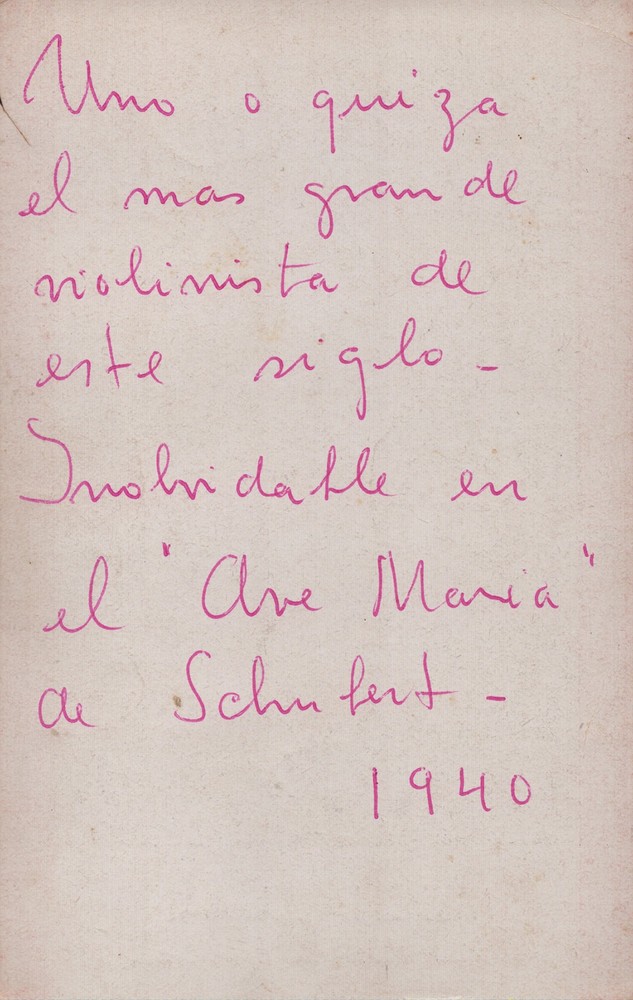 Uno o quiza
el mas grande
violinista de
este siglo -
Inolvidable en
el "Ave Maria"
de Schubert -
1940